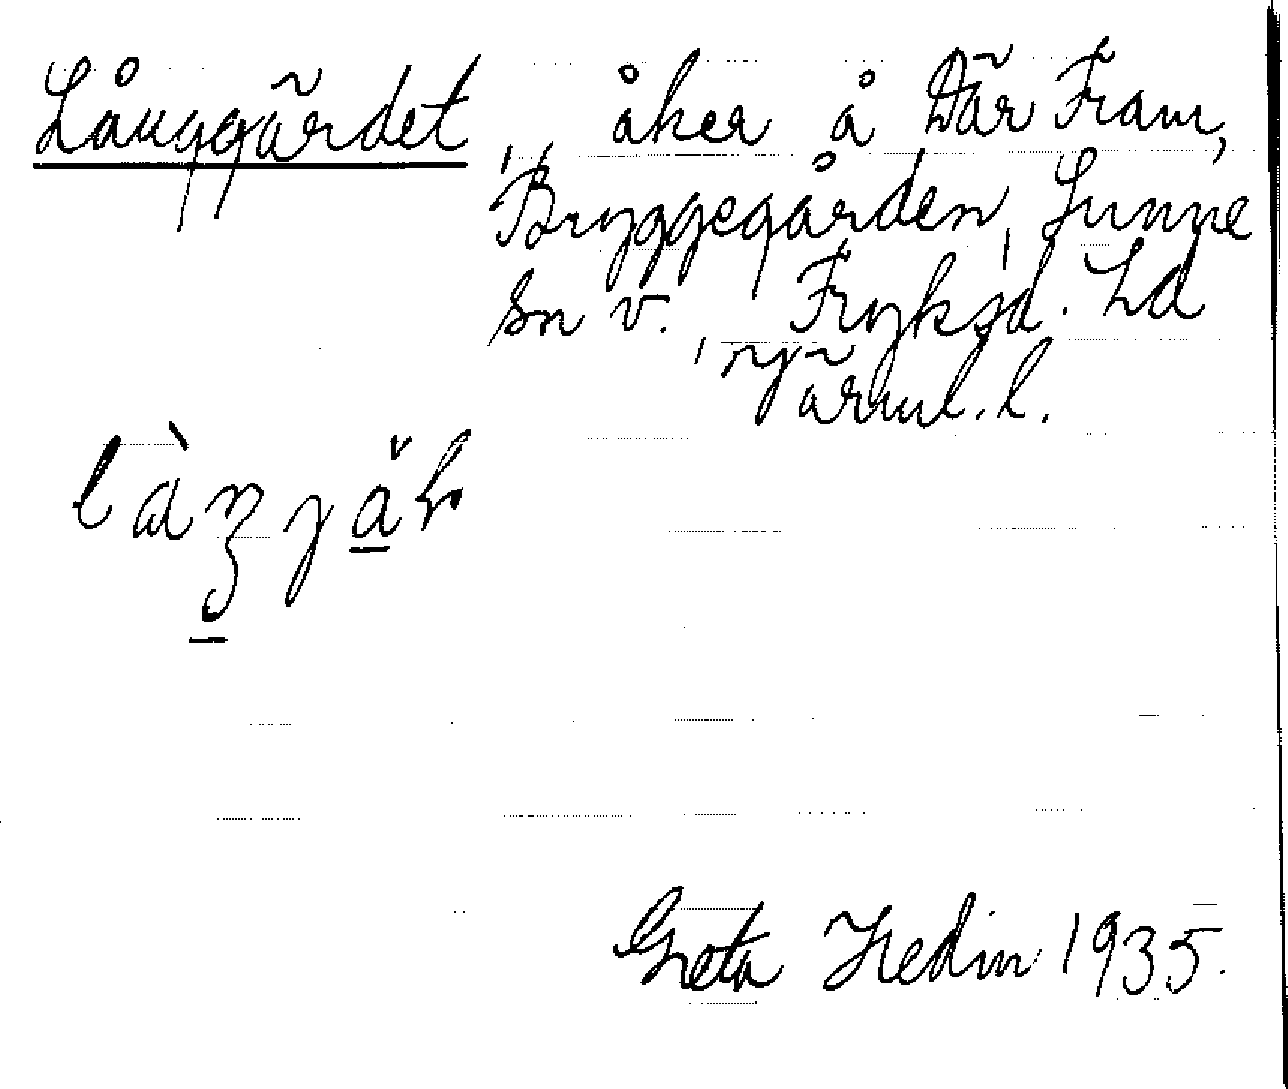 Långgärdet åker å Där Fram,
Bryggegården, Sunne
sn v. Fryksd. hd
Värml. l.
Greta Hedin 1935.